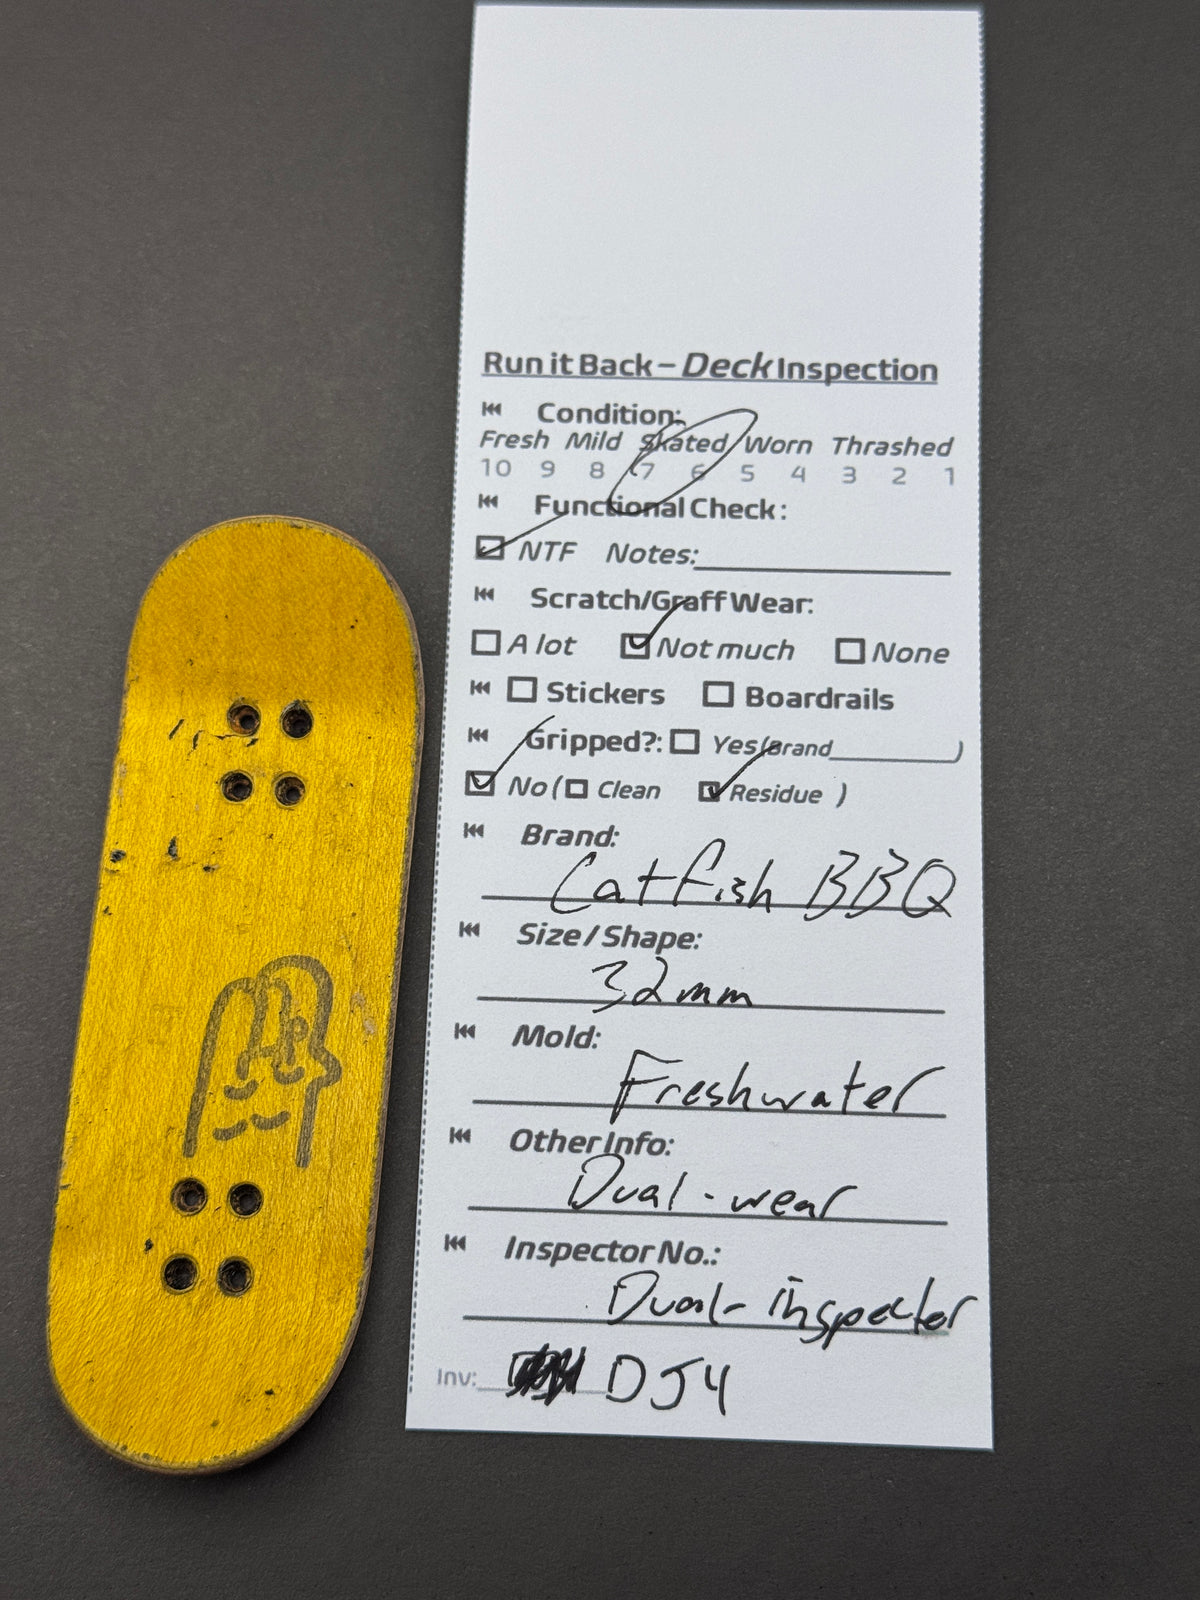 Run it Back – Deck Inspection
Condition:
Fresh Mild Skated Worn Thrashed
10 9 8 7 6 5 4 3 2 1
Functional Check:
NTF Notes:
Scratch/Graff Wear:
A lot Not much None
Stickers Boardrails
Gripped?: Yes (Brand )
No ( Clean Residue )
Brand:
Catfish BBQ
Size / Shape:
32mm
Mold:
Freshwater
Other Info:
Dual-wear
Inspector No.:
Dual-inspector
Inv: DJ4